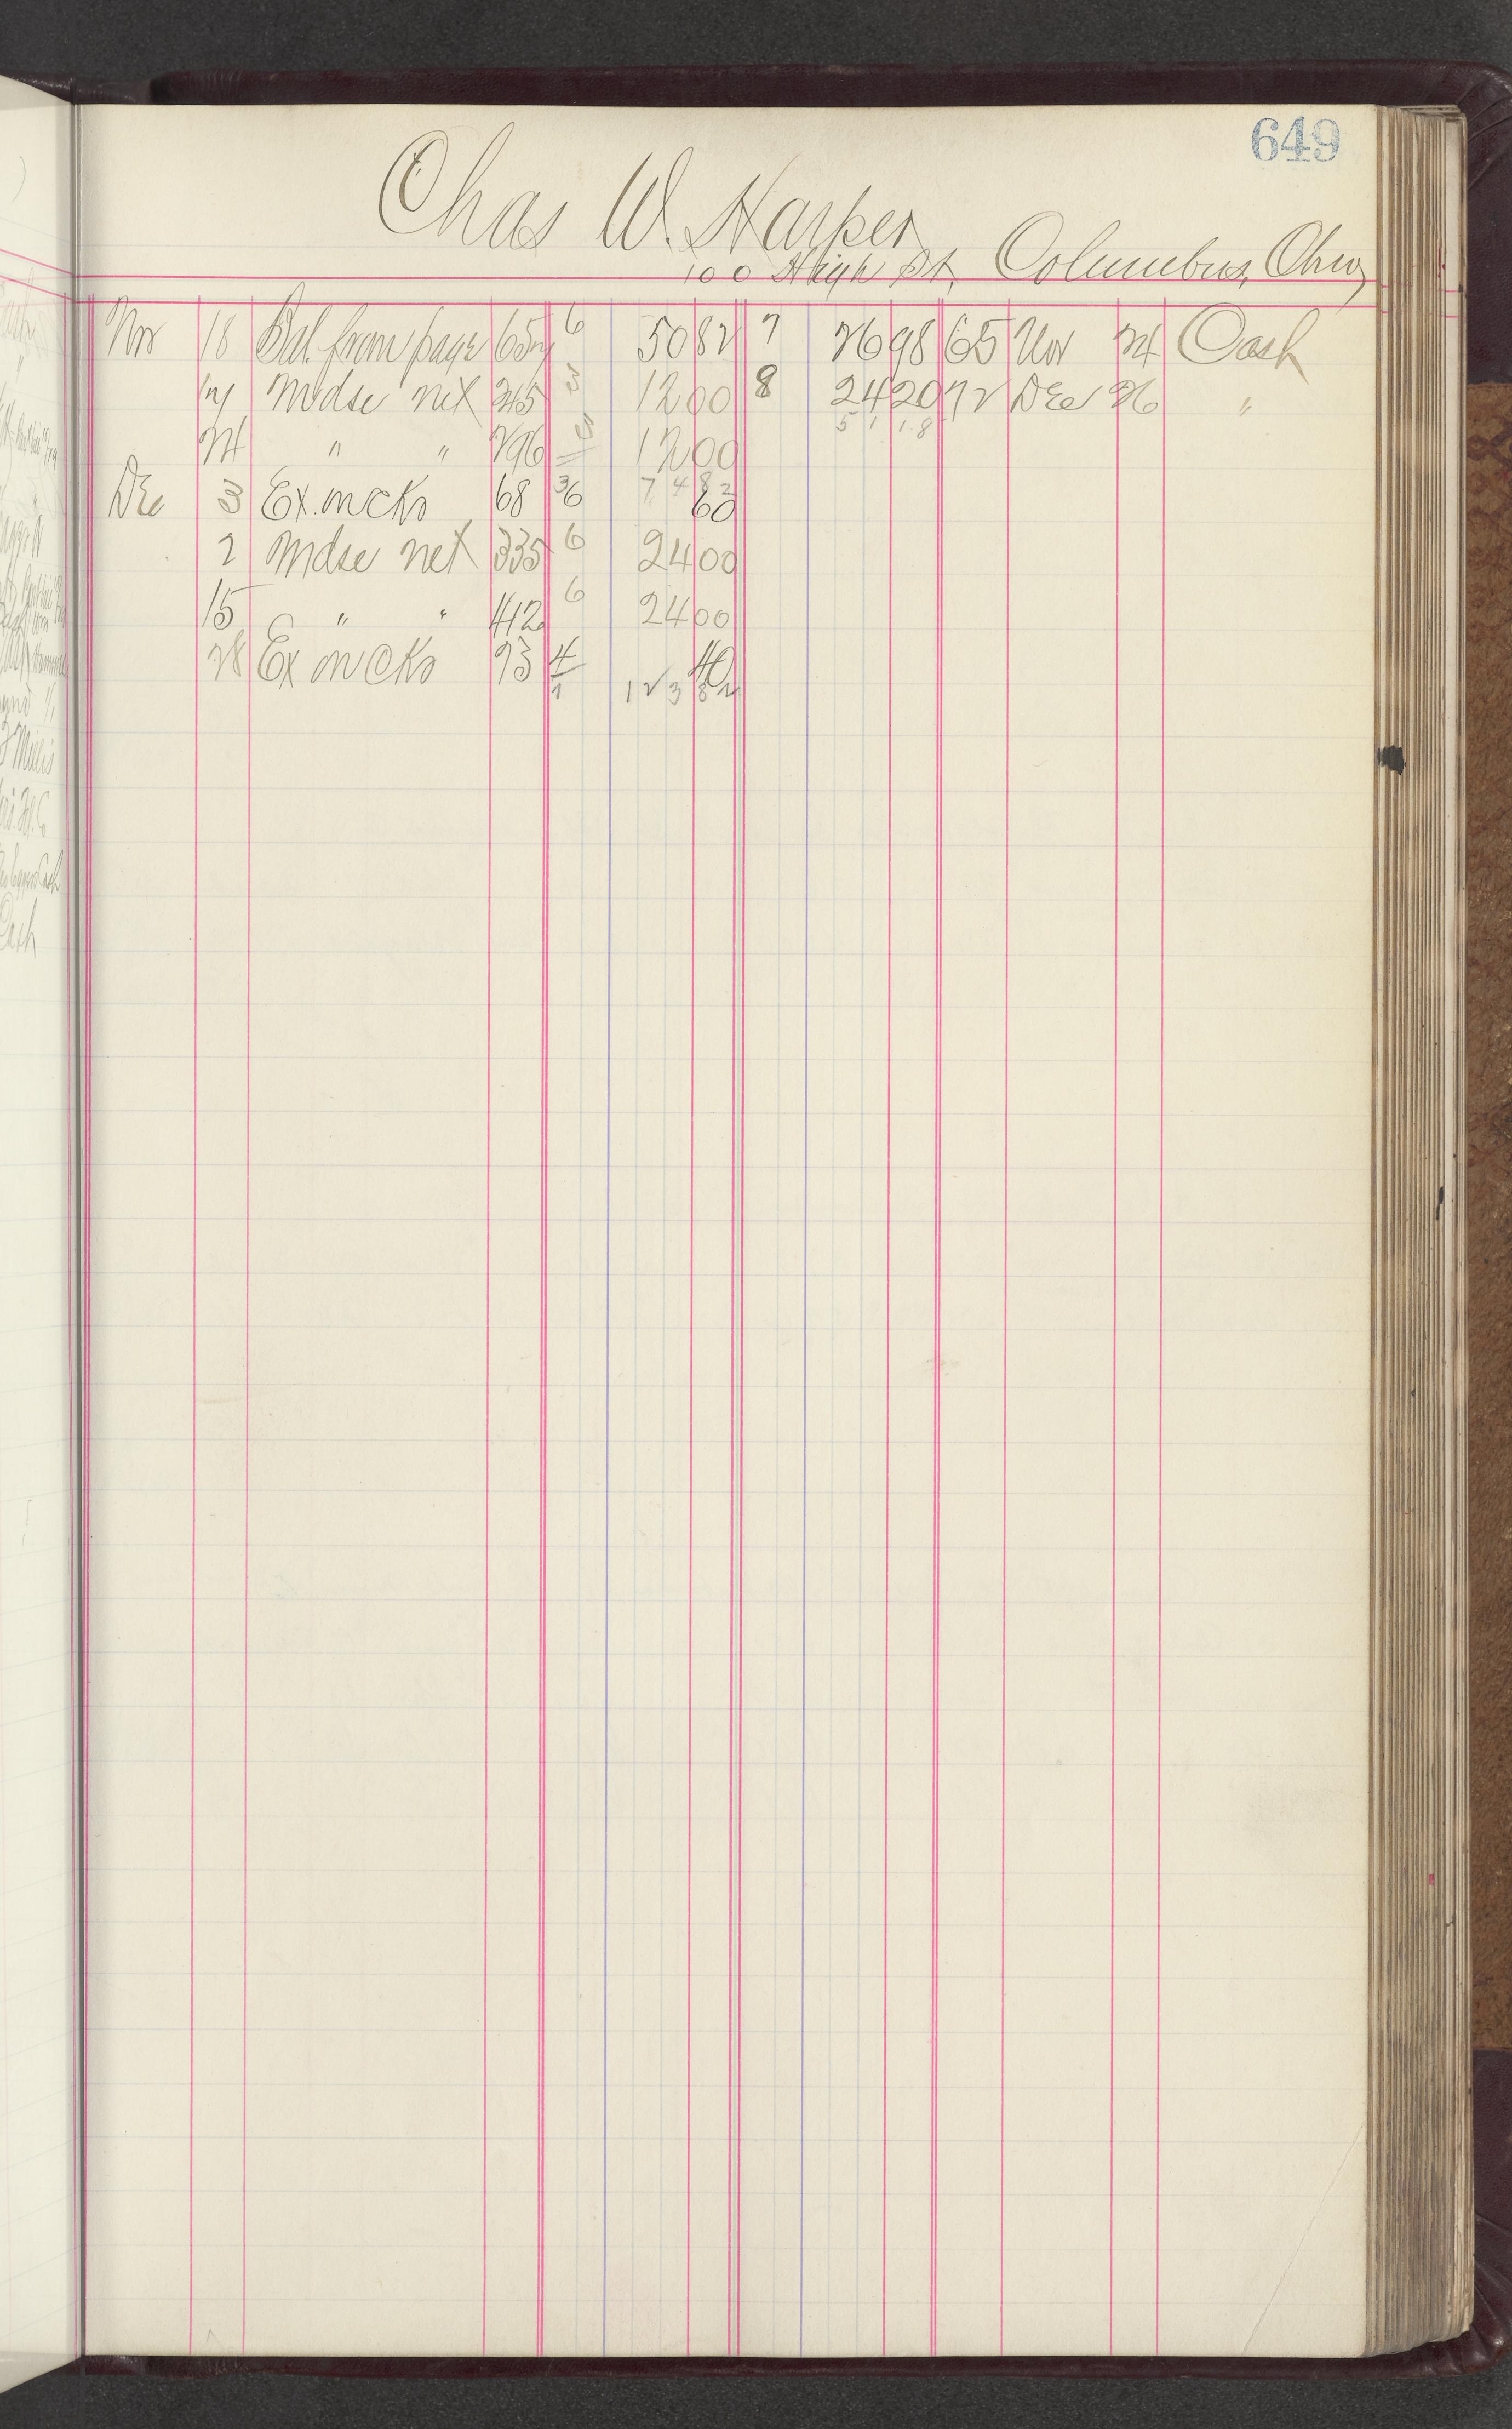 649
Chas W. Harper
100 High St, Columbus, Ohio,
Nov 18 Bal. from page 657 6 50 82 7 26 98 65 Nov 24 Cash
17 Mdse net 245 3 12 00 8 24 20 72 Dec 26 "
51 18
24 " " 296 3 12 00
74 82
Dec 3 Ex. on cks 68 36 60
2 Mdse net 335 6 24 00
15 " " 412 6 24 00
28 Ex on cks 73 4 40
7 123 82
Cash